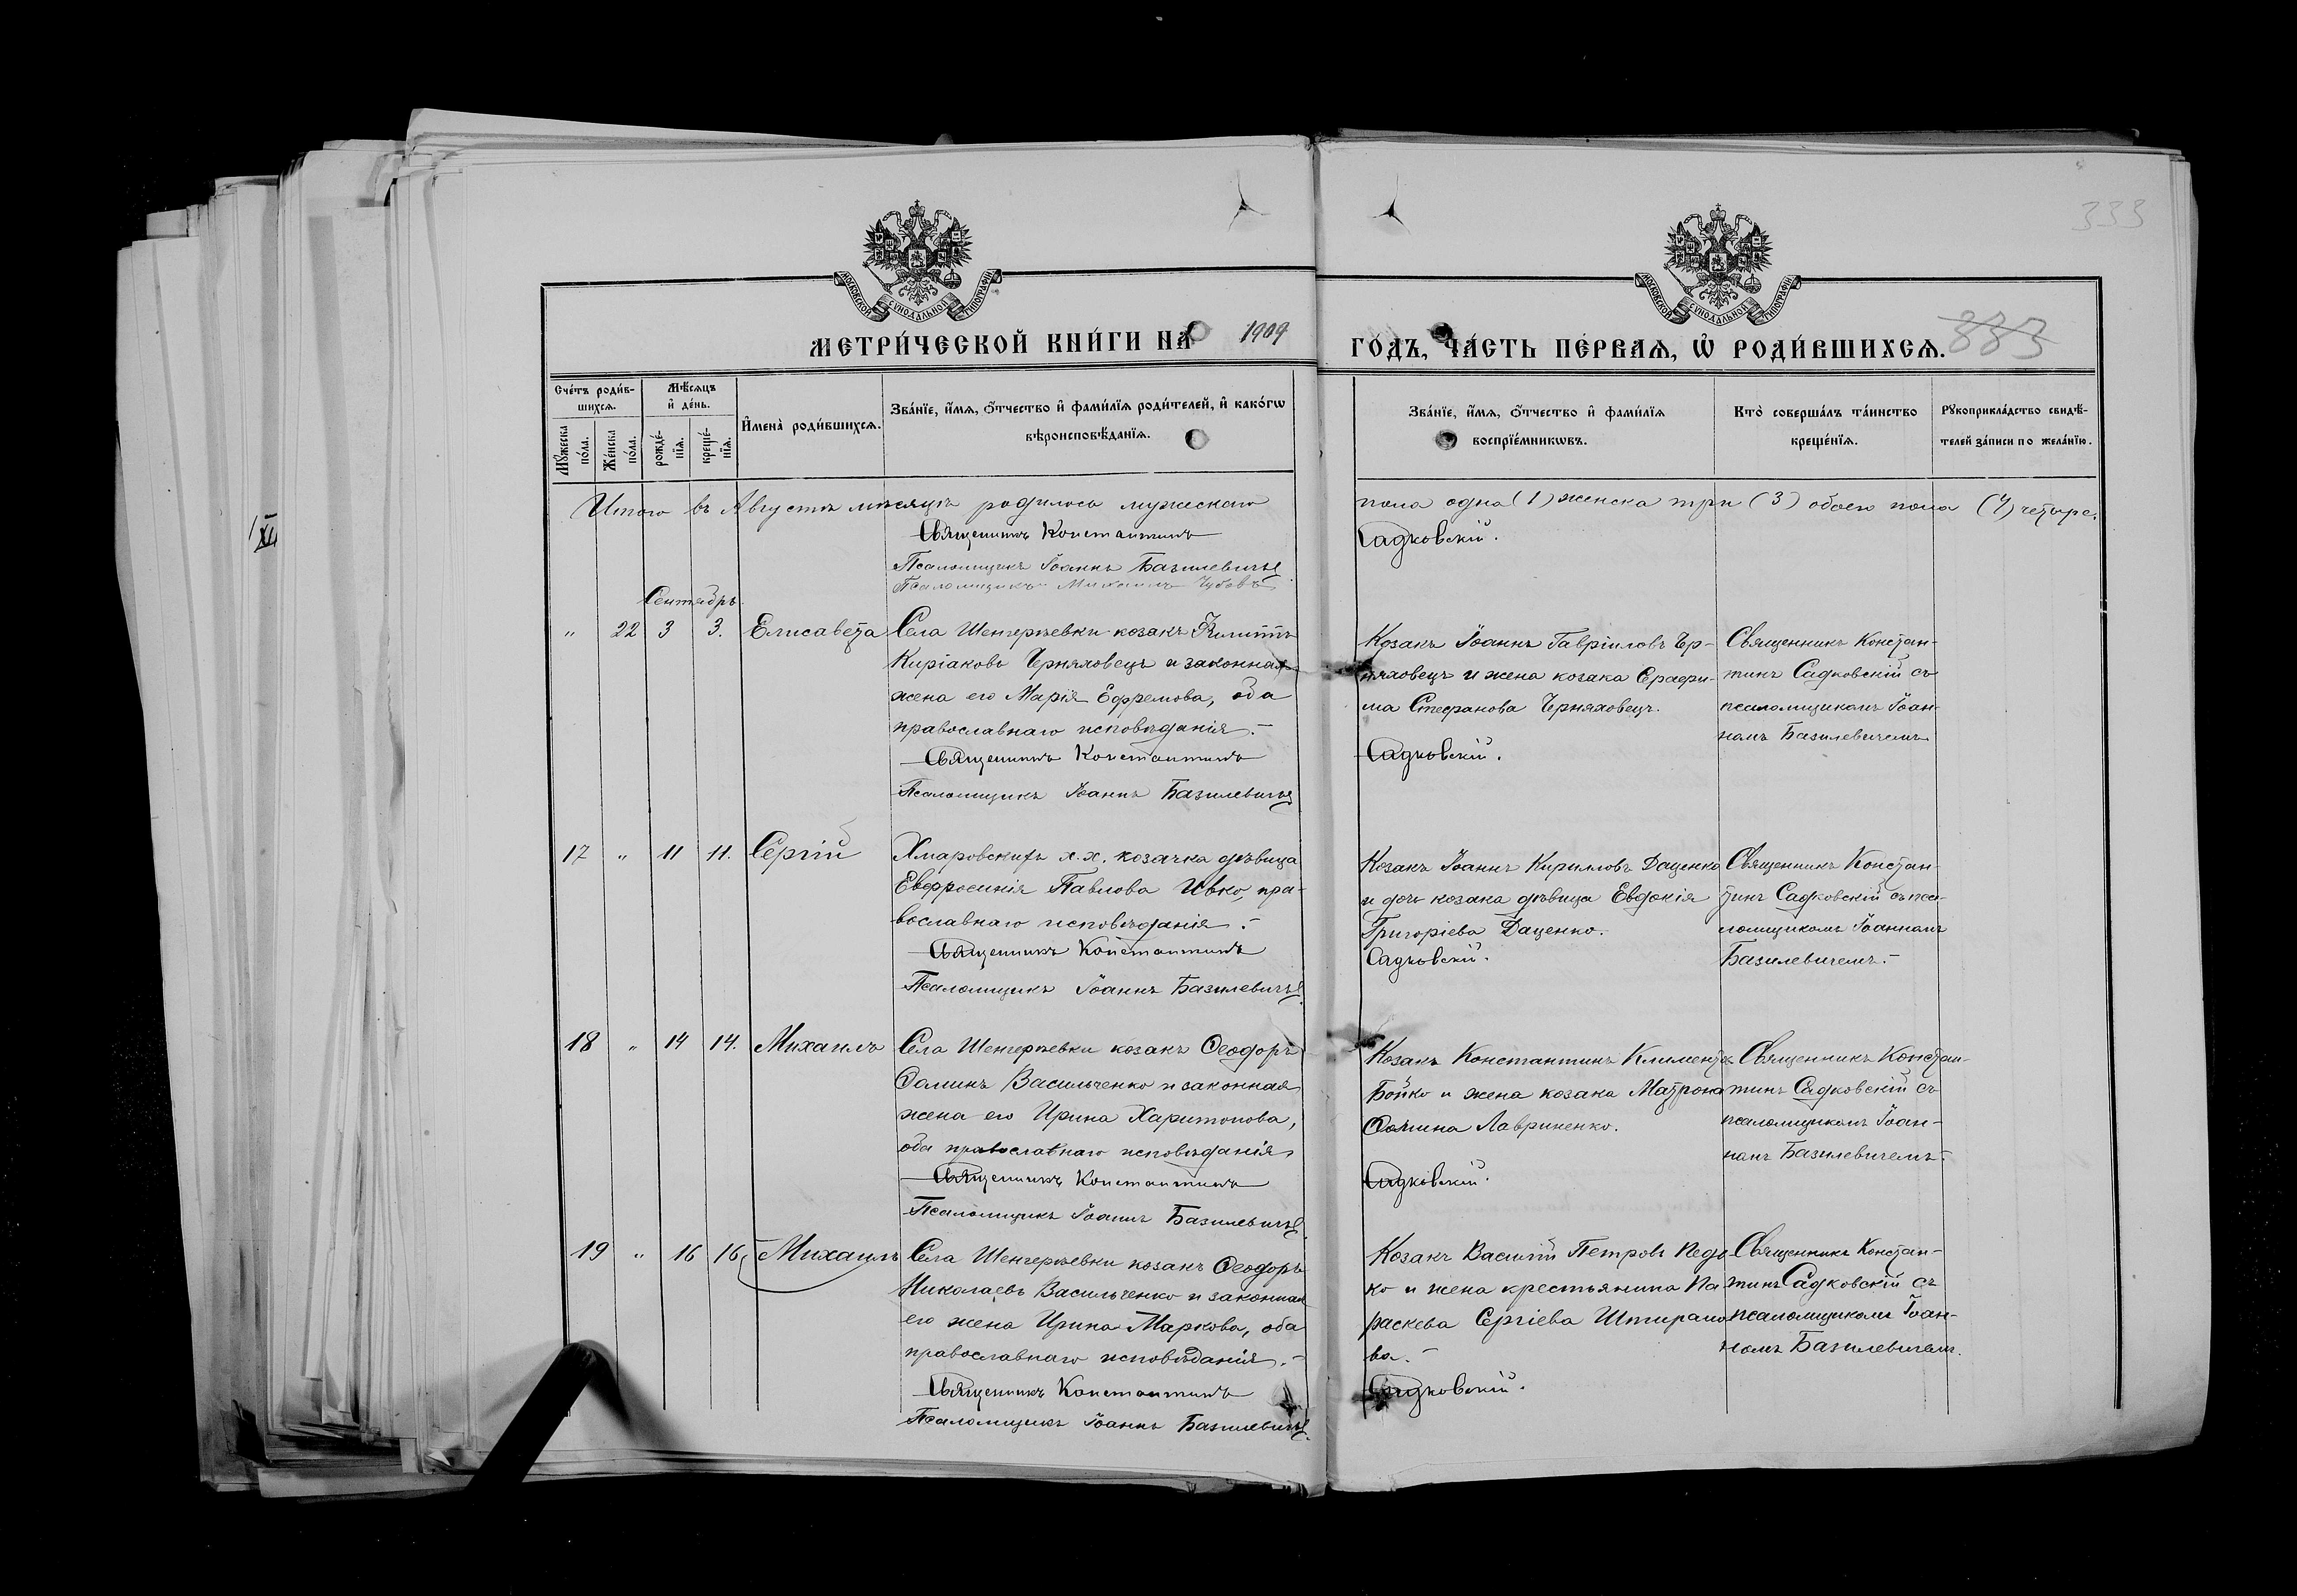 333
МОСКОВСКОЙ СУНОДАЛЬНОЙ ТИПОГРАФІИ
МОСКОВСКОЙ СУНОДАЛЬНОЙ ТИПОГРАФІИ
МЕТРИ́ЧЕСКОЙ КНИ́ГИ НА 1909
ГО́ДЪ, ЧА́СТЬ ПЕ́РВАѦ, Ѡ҆ РОДИ́ВШИХСѦ. 333
Сче́тъ роди́в-
шихсѧ.
Мѣ́сѧцъ
и҆ де́нь.
И҆мена̀ роди́вшихсѧ.
Зва́нїе, и҆́мѧ, ѻ҆́тчество и҆ фами́лїѧ роди́телей, и҆ како́гѡ
вѣроисповѣ́данїѧ.
Мꙋ́жеска по́ла.
Же́нска по́ла.
рожде́-нїѧ.
креще́-нїѧ.
Зва́нїе, и҆́мѧ, ѻ҆́тчество и҆ фами́лїѧ
воспрїе́мникѡвъ.
Кто̀ соверша́лъ та́инство
креще́нїѧ.
Рꙋкоприкла́дство свидѣ́-
телей за́писи по жела́нїю.
Итого въ Августѣ мѣсяцѣ родилось мужескаго
пола одна (1) женска три (3) обоего пола (4) четыре.
Священникъ Константинъ
Садковскій.
Псаломщикъ Іоаннъ Базилевичъ
Псаломщикъ Михаилъ
Сентябрь.
" 22 3 3. Елисавета
Села Шенгерѣевки козакъ
Киріаковъ Черняховецъ и законная
жена его Марія Ефремова, оба
православнаго исповѣданія.-
Священникъ Константинъ
Псаломщикъ Іоаннъ Базилевичъ
Козакъ Іоаннъ Гавріиловъ Чер-
няховецъ и жена козака Серафи-
ма Стефанова Черняховецъ.
Садковскій.
Священникъ Констан-
тинъ Садковскій съ
псаломщикомъ Іоан-
номъ Базилевичемъ
17 " 11 11. Сергій
Хмаровскихъ х.х. козачка дѣвица
Евфросинія Павлова Ивко, пра-
вославнаго исповѣданія.-
Священникъ Константинъ
Псаломщикъ Іоаннъ Базилевичъ
Козакъ Іоаннъ Кирилловъ Даценко
и дочь козака дѣвица Евдокія
Григоріева Даценко.
Садковскій.
Священникъ Констан-
тинъ Садковскій съ пса-
ломщикомъ Іоанномъ
Базилевичемъ.-
18 " 14 14. Михаилъ
Села Шенгерѣевки козакъ Ѳеодоръ
Ѳоминъ Васильченко и законная
жена его Ирина Харитонова,
оба православнаго исповѣданія
Священникъ Константинъ
Псаломщикъ Іоаннъ Базилевичъ
Козакъ Константинъ Климентовъ
Бойко и жена козака Матрона
Ѳомина Лавриненко.
Садковскій.
Священникъ Констан-
тинъ Садковскій съ
псаломщикомъ Іоан-
номъ Базилевичемъ.-
19 " 16 16. Михаилъ
Села Шенгерѣевки козакъ Ѳеодоръ
Николаевъ Васильченко и законная
его жена Ирина Маркова, оба
православнаго исповѣданія.-
Священникъ Константинъ
Псаломщикъ Іоаннъ Базилевичъ
Козакъ Василій Петровъ
ко и жена крестьянина Па-
раскева Сергіева
ва.-
Садковскій.
Священникъ Констан-
тинъ Садковскій съ
псаломщикомъ Іоан-
номъ Базилевичемъ.